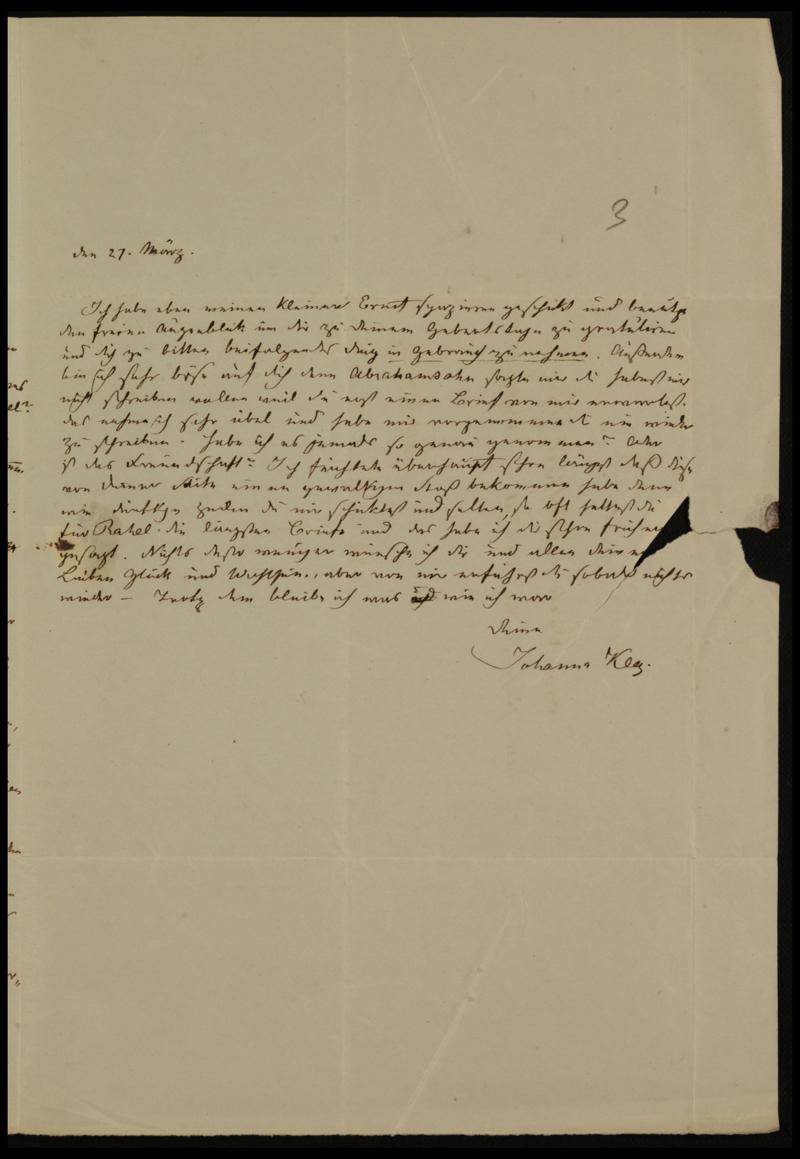 3
den 27. März.
Ich habe eben meinen kleinen Ernst spazieren geschikt und benütze
den freien Augenblik um dir zu deinem Geburtstage zu gratuliren
und dich zu bitten beifolgendes Ding in Gebrauch zu nehmen. Außerdem
bin ich sehr böse auf dich denn Abrahamsohn sagte mir du habest mir
nicht schreiben wollen weil du erst einen Brief von mir erwartest.
das nehme ich sehr übel und habe mir vorgenommen nie wieder
zu schreiben. Habe ich es jemals so genau genommen? Oder
ist das Freundschaft? Ich fürchtete überhaupt schon längst daß diese
von deiner Seite einen gewaltigen Stoß bekommen habe denn
wie dürftige Zeilen du mir schiktest und selten, so oft hattest du
für Rahel die längsten Briefe und das habe ich dir schon früher
gesagt. Nichts desto weniger wünsche ich dir und allen deinen
Lieben Glück und aber von mir erfährst du sobald nichts
wieder – Trotz dem bleibe ich was und wie ich war
deine
Johanna Kley.